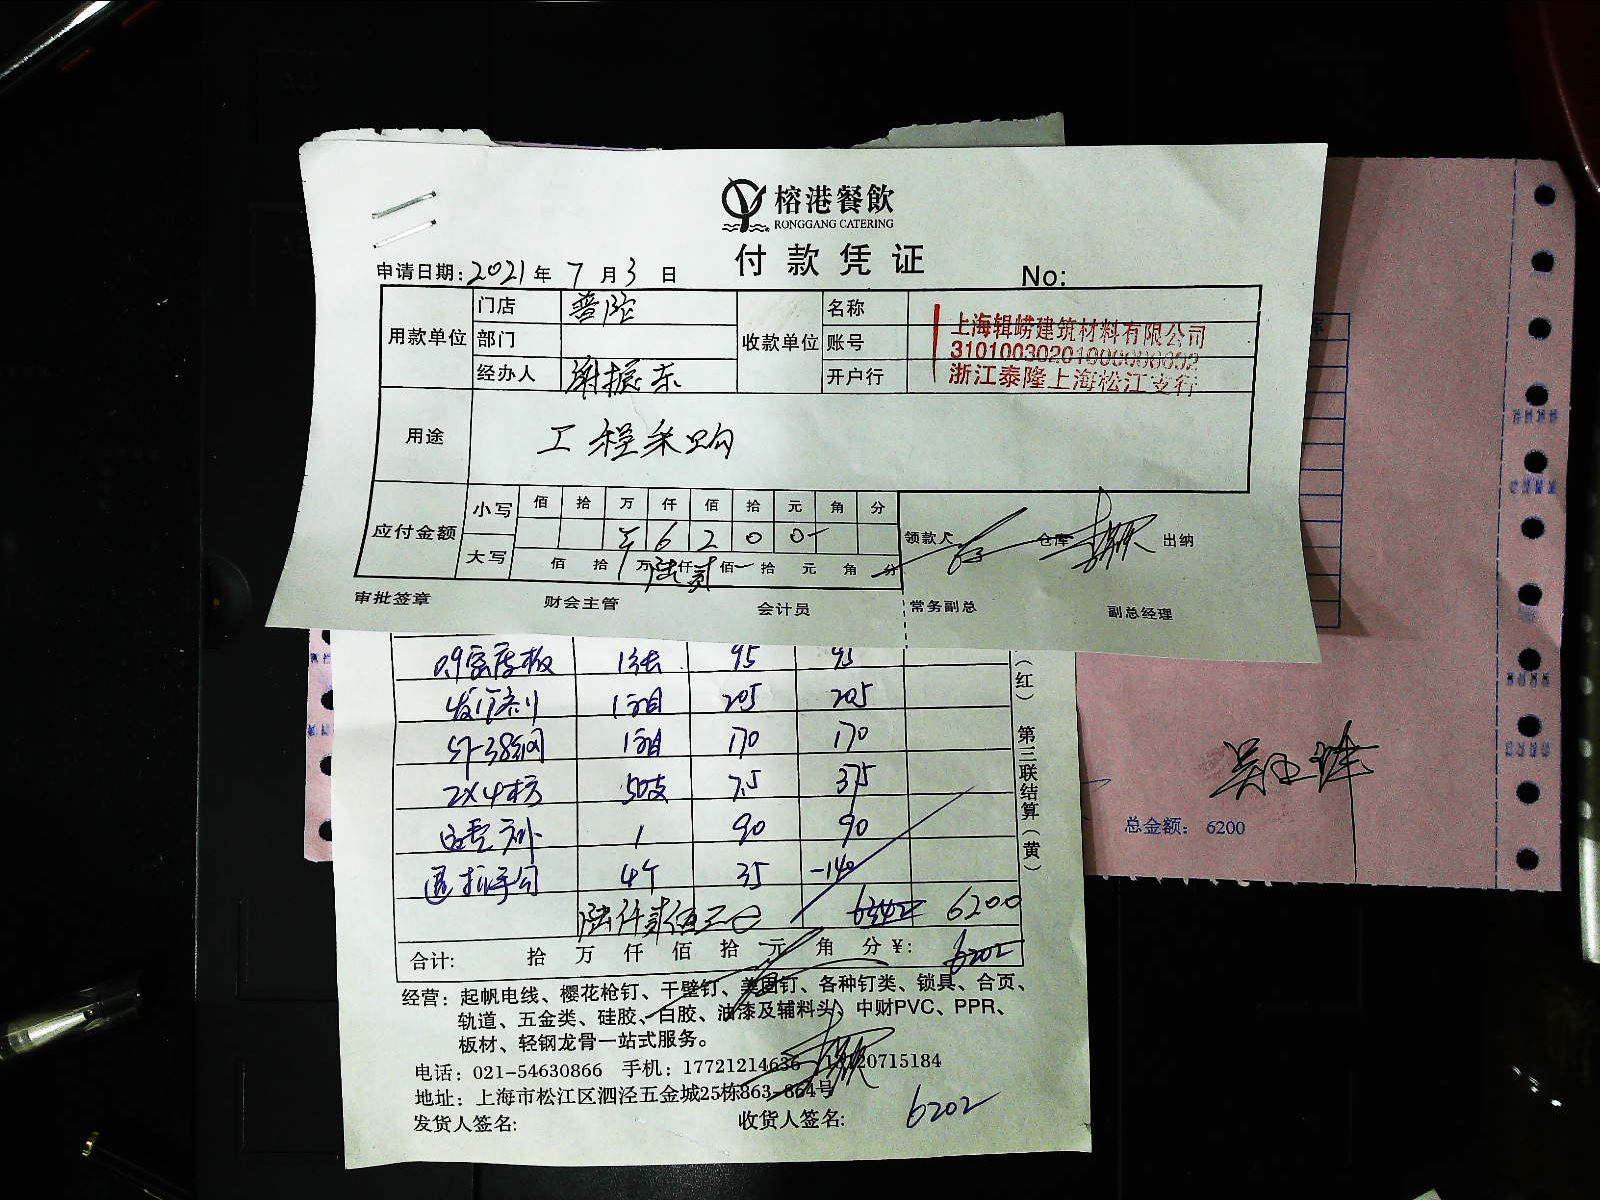 榕港餐飲
RONGGANG CATERING
付款凭证
申请日期: 2021 年 7 月 3 日 No:
用款单位 门店 普陀 收款单位 名称 上海辑崂建筑材料有限公司
部门 账号
经办人 谢振东 开户行 浙江泰隆上海松江支行
用途 工程采购
应付金额 小写 佰 拾 万 仟 佰 拾 元 角 分
¥ 6 2 0 0 -
大写 佰 拾 万 陆 仟 贰 佰 拾 元 角 分
领款人 仓库 出纳
审批签章 财会主管 会计员 常务副总 副总经理
0.9密度板 1张 95 95
1箱 205 205
1箱 170 170
2×4木方 50支 7.5 375
1 90 90
退拉手 4个 35 -140
陆仟贰佰元 6200
合计: 拾 万 仟 佰 拾 元 角 分 ¥: 6202
(红) 第三联结算(黄)
经营: 起帆电线、樱花枪钉、干壁钉、美固钉、各种钉类、锁具、合页、
轨道、五金类、硅胶、白胶、油漆及辅料头、中财PVC、PPR、
板材、轻钢龙骨一站式服务。
电话: 021-54630866 手机: 17721214636
地址: 上海市松江区泗泾五金城25栋863-864号
发货人签名: 收货人签名: 6202
总金额: 6200